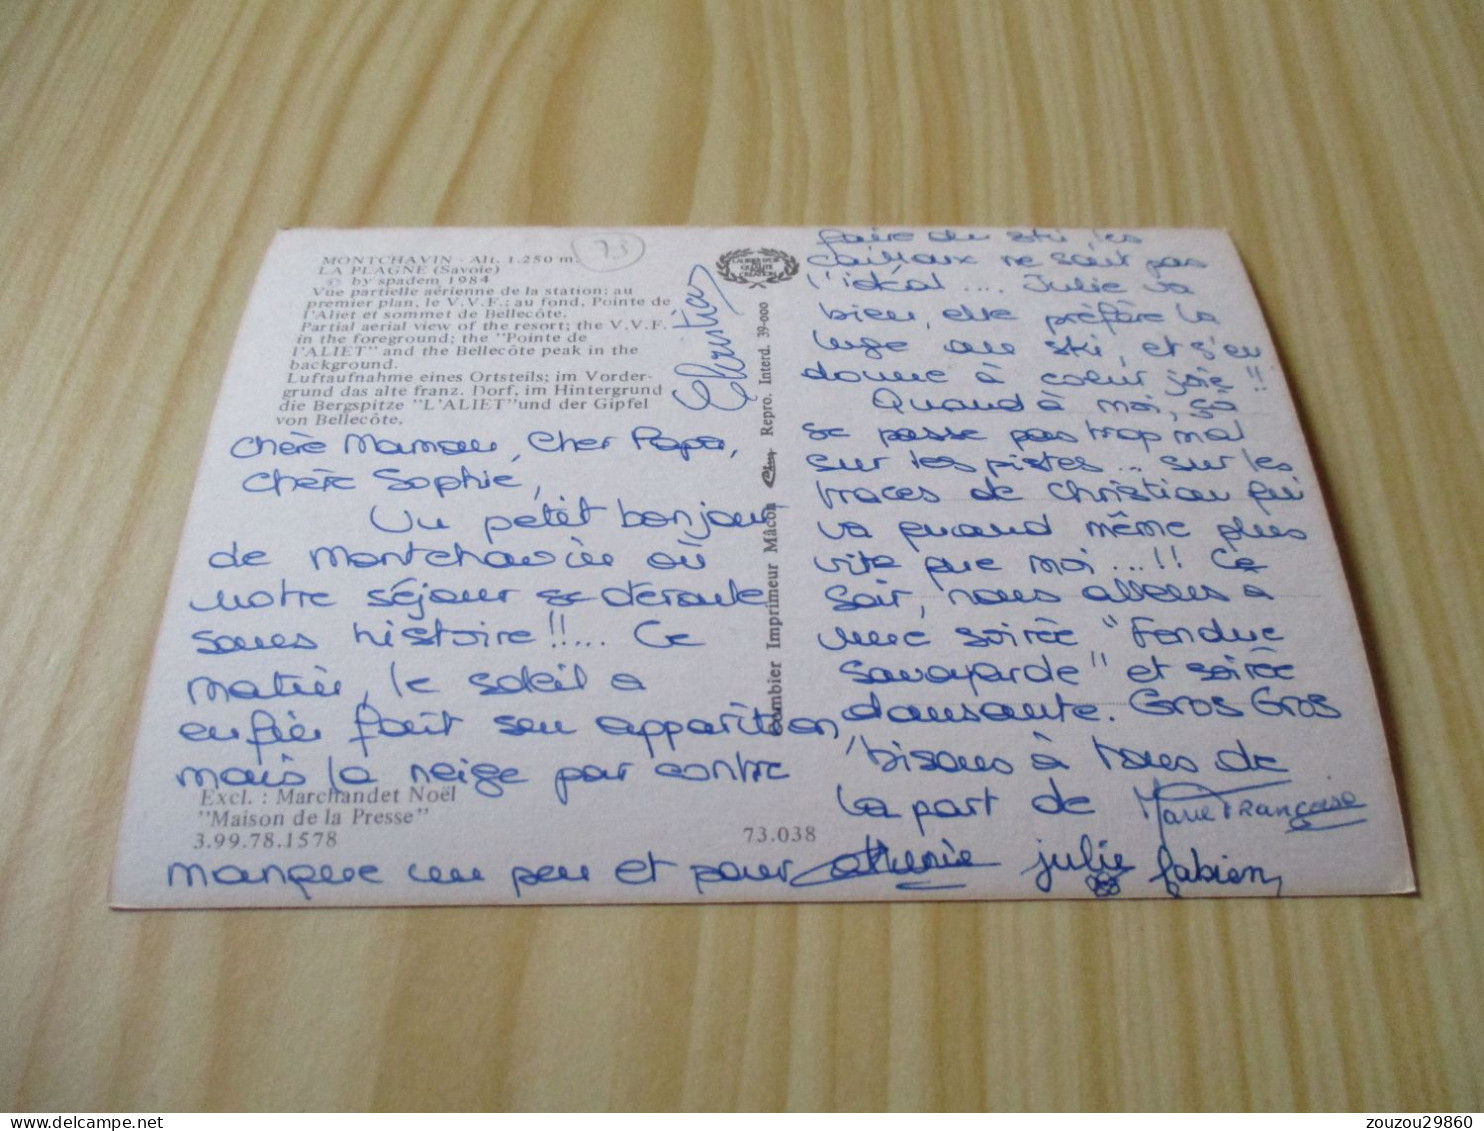 MONTCHAVIN - Alt. 1.250 m.
73
LA PLAGNE (Savoie)
© by spadem 1984
Vue partielle aérienne de la station; au
premier plan, le V.V.F.; au fond, Pointe de
l'Aliet et sommet de Bellecôte.
Partial aerial view of the resort; the V.V.F.
in the foreground; the "Pointe de
l'ALIET" and the Bellecôte peak in the
background.
Luftaufnahme eines Ortsteils; im Vorder-
grund das alte franz. Dorf, im Hintergrund
die Bergspitze "L'ALIET" und der Gipfel
von Bellecôte.
Chère Maman, Cher Papa,
Chère Sophie,
Un petit bonjour
de Montchavin où
notre séjour se déroule
sans histoire!!... Ce
matin, le soleil a
enfin fait son apparition,
mais la neige par contre
Excl. : Marchandet Noël
"Maison de la Presse"
3.99.78.1578
73.038
manque un peu et pour
Christian
Combier Imprimeur Mâcon Cim Repro. Interd. 39-000
LAURIER D'OR
DE
QUALITÉ
CRÉATION
faire du ski, les
cailloux ne sont pas
l'idéal .... Julie va
bien, elle préfère la
luge au ski, et s'en
donne à coeur joie!!
Quand à moi, ça
se passe pas trop mal
sur les pistes... sur les
traces de Christian qui
va quand même plus
vite que moi...!! Ce
soir, nous allons à
une soirée "Fondue
Savoyarde" et soirée
dansante. Gros Gros
bisous à tous de
la part de Marie Françoise
julie fabien
zouzou29860